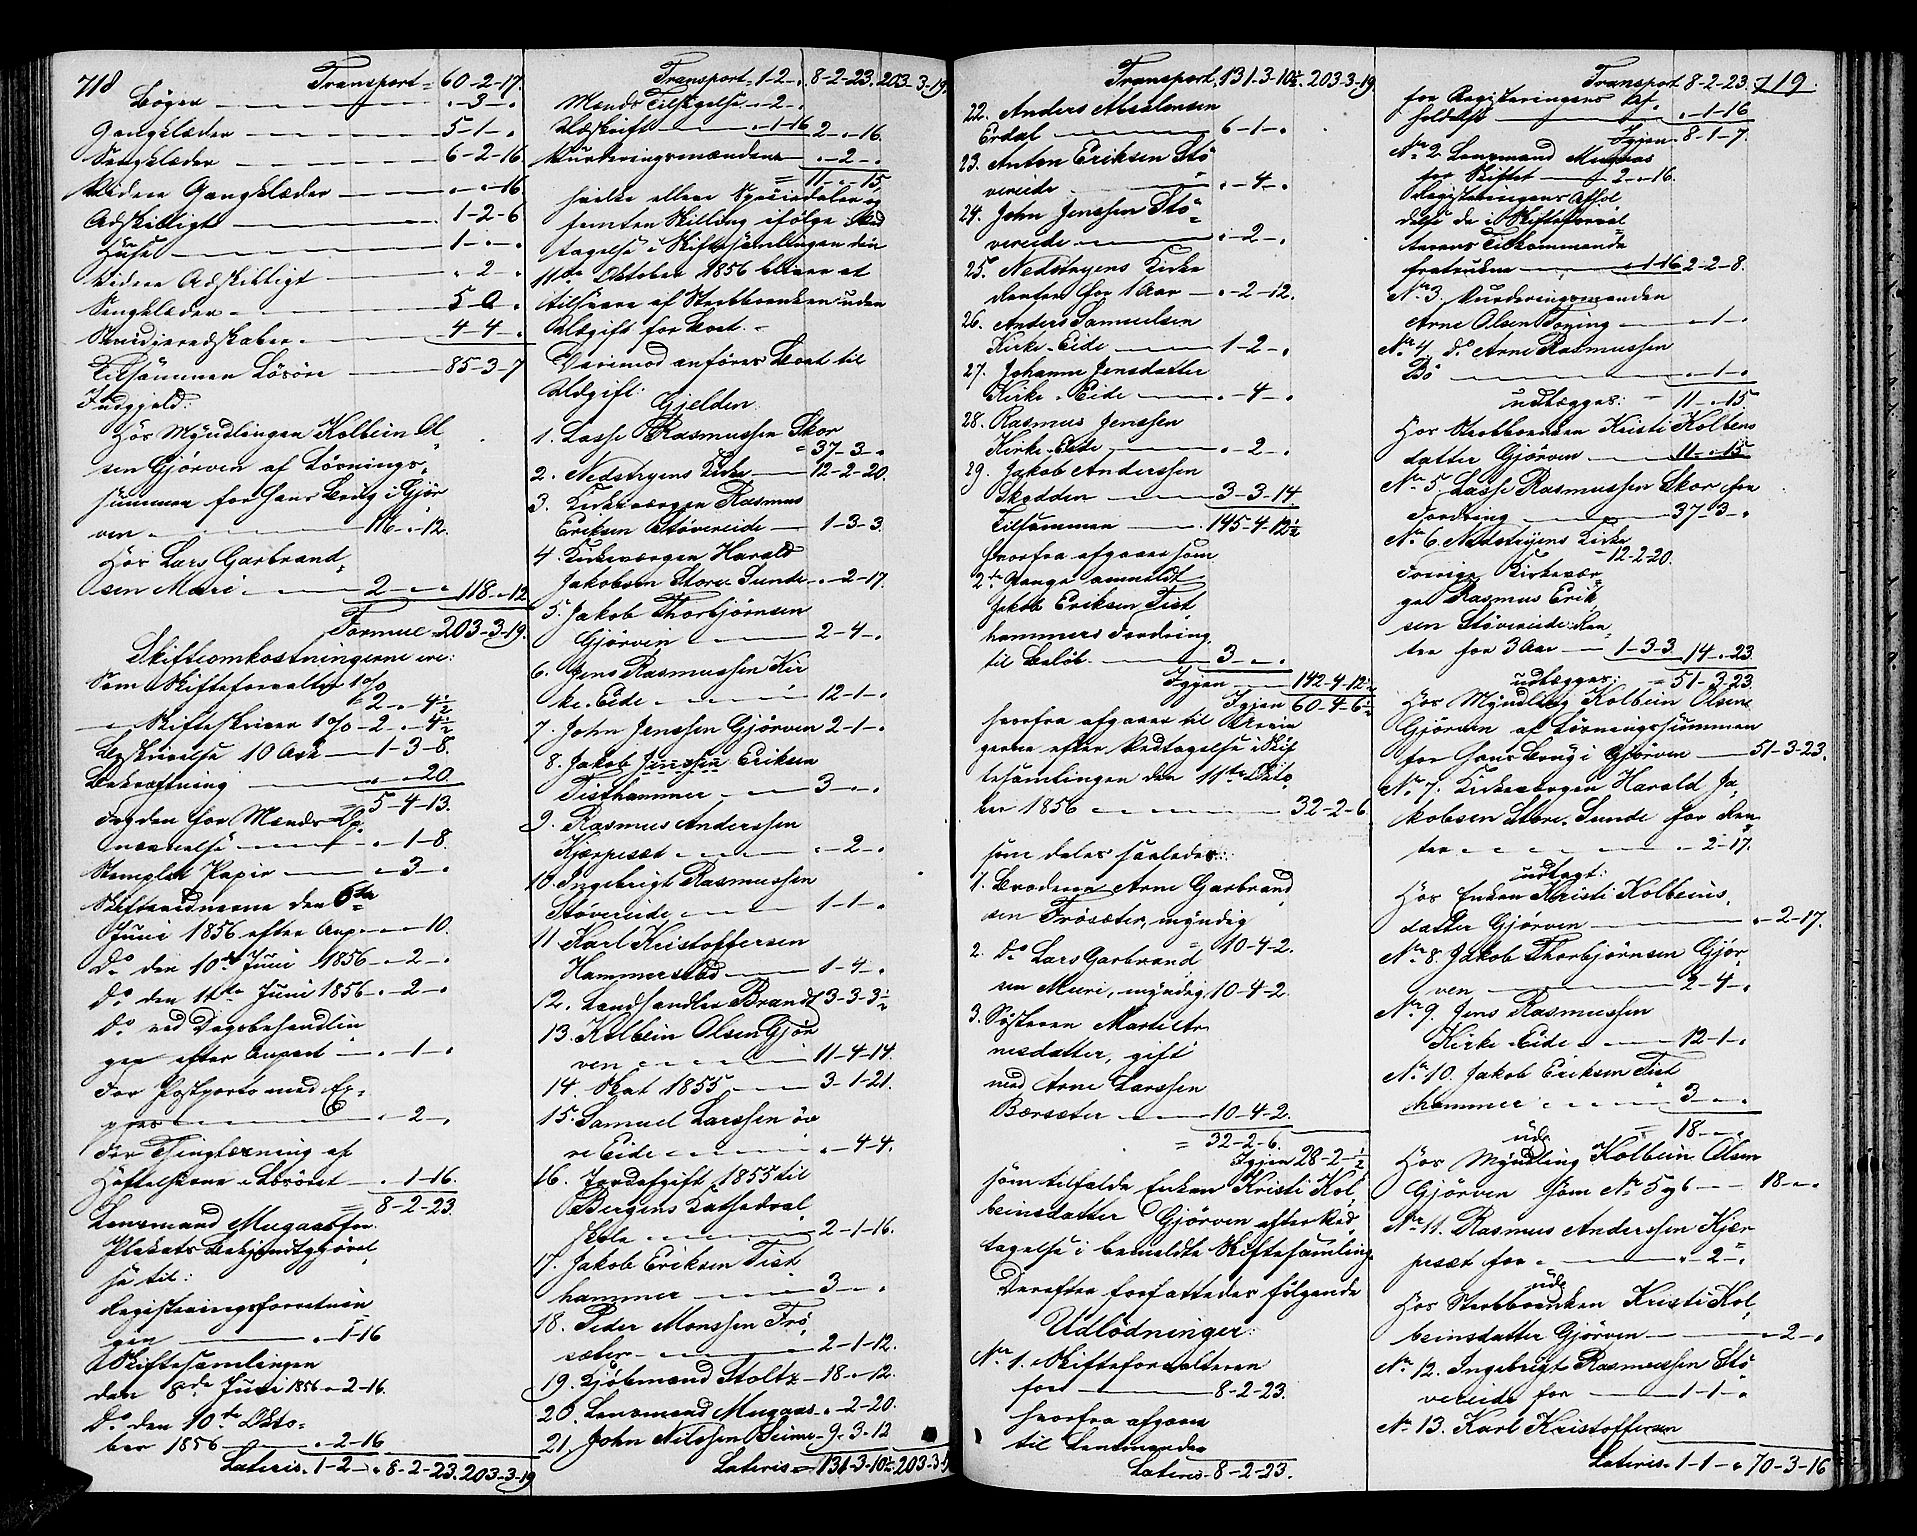 718 Transport 60-2-17.
Bøger - 3 -
Gangklæder 5-1-
Sengklæder 6-2-16.
Videre Gangklæder - - 16
Adskilligt 1-2-6
Huse 1 - -
Videre Adskilligt - 2 -
Sengklæder 5-0
Smidieredskaber 4-4-
Tilsammen Løsøre 85-3-7
Indgjeld:
Hos Myndlingen Kolbein Ol
sen Gjørven af Løsnings,
summen for hans Brug i Gjør
ven 116-12.
Hos Lars Garbrand,
sen Muri 2 - - 118-12
Formue 203-3-19.
Skifteomkostningerne ere:
Som Skifteforvalter 1 0/0
2 - 4½
Skifteskriver 1 0/0 - 2 - 4½
Beskrivelse 10 Ark 1-3-8.
Bekræftning - - 20
5-4-13.
Fogden for Mænds Op,
nævnelse - 1-8.
Stemplet Papir - 3 -
Skiftevidnerne den 6te
Juni 1856 efter Anp - - 10.
Do den 10de Juni 1856 - 2 -
Do den 11te Juni 1856 - 2 -
Do ved Dagsbehandlin
gen efter Anpart - 1 -
For Postporto med Ex,
presse - 2 -
For Thinglæsning af
Hæftelserne i Løsøret - 1-16.
8-2-23.
Lensmand Mugaas for
Plakats Bekjendtgjørel,
se til:
Registreringsforretnin
gen - 1-16
Skiftesamlingen
den 8de Juni 1856 - 2-16.
Do den 10de Okto=
ber 1856 - 2-16
Lateris 1-2- - 8-2-23. 203-3-19
Transport 1-2- 8-2-23. 203-3-19.
Mænds Tilsigelse - 2 -
Udskrift - 1-16 2 - 16.
Vurderingsmændene - 2 -
= 11 - 15,
hvilke elleve Speciedaler og
femten Skilling ifølge Ved
tagelse i Skiftesamlingen den
11te Oktober 1856 bliver at
tilsvare af Sterbboenken uden
Udgift for Boet.
Derimod anføres Boet til
Udgift:
Gjelden:
1. Lasse Rasmussen Skor
37-3-
2. Nedstryens Kirke 12-2-20.
3. Kirkeværgen Rasmus
Eriksen Støvereide 1-3-3
4. Kirkeværgen Harald
Jakobsen Store Sunde - 2-17.
5. Jakob Thorbjørnsen
Gjørven 2-4-
6. Jens Rasmussen Kir
ke-Eide 12-1-
7. John Jenssen Gjørven 2-1-
8. Jakob Jenssen Eriksen
Tisthammer 3 - -
9. Rasmus Anderssen
Kjærpeset - 2 -
10. Ingebrigt Rasmussen
Støvereide 1-1-
11. Karl Kristoffersen
Hammerstad 1-4-
12. Landhandler Brandt 3-3-3½
13. Kolbein Olsen Gjør
ven 11-4-14.
14. Skat 1855 3-1-21.
15. Samuel Larssen Øv
re Eide - 4-4.
16. Jordafgift 1855 til
Bergens Kathedral,
skole 2-1-16.
17. Jakob Eriksen Tist
hammer 3 - -
18. Peder Monssen Frø,
sæter 2-1-12.
19. Kjøbmand Stoltz 18 - 12.
20. Lensmand Mugaas - 2-20.
21. John Nilssen Heimi 9-3-12
Lateris 131-3-10½ 203-3-19
Transport 131-3-10½ 203-3-19
22. Anders Absalonsen
Erdal 6-1-
23. Anton Eriksen Stø
vereide - 4 -
24. John Jenssen Stø
vereide - 2 -
25. Nedstryens Kirke
Renter for 1 Aar - 2-12.
26. Anders Samuelsen
Kirke-Eide 1-2-
27. Johanne Jensdatter
Kirke-Eide - 4 -
28. Rasmus Jenssen
Kirke-Eide - 2 -
29. Jakob Anderssen
Skodden 3-3-14
Tilsammen 145-4-12½
hvorfra afgaaer som
2de Gange anmeldt
Jakob Eriksen Tist
hammers Fordring,
til Beløb 3 - -
Igjen 142-4-12½
Igjen 60-4-6½
hvorfra afgaaer til Arvin
gerne efter Vedtagelse i Skif
tesamlingen den 11te Okto
ber 1856 32-2-6
som deles saaledes:
1. Broderen Arne Garbrand,
sen Frøsæter, myndig
10-4-2.
2. Do Lars Garbrand
sen Muri, myndig 10-4-2.
3. Søsteren Marte Ar
nesdatter, gift
med Arne Larssen
Bærsæter 10-4-2.
= 32-2-6.
Igjen 28-2-½
som tilfalde Enken Kristi Kol,
beinsdatter Gjørven efter Ved,
tagelse i bemeldte Skiftesamling
Derefter forfattedes følgende
Udlødninger:
No 1. Skifteforvalteren
for 8-2-23.
hvorfra afgaaer
til Lensmanden
Lateris 8-2-23.
Transport 8-2-23. 719.
for Registreringens Af,
holdelse - 1-16
Igjen 8-1-7.
No 2. Lensmand Mugaas
for Skiftet 2 - 16.
Registreringens Afhol
delse de i Skifteforval
terens Tilkommende
fratrukne - 1-16 2-2-8.
No 3. Vurderingsmanden
Arne Olsen Toning - 1 -
No 4. do Arne Rasmussen
Bø - 1 -
udlægges: 11 - 15.
Hos Sterbboenken Kristi Kolbeins
datter Gjørven 11 - 15
No 5. Lasse Rasmussen Skor hans
Fordring 37-3-
No 6. Nedstryens Kirke
12-2-20.
Forrige Kirkevær
ge Rasmus Erik
sen Støvereide Ren,
ter for 3 Aar 1-3-3. 14 - 23
udlægges: = 51-3-23.
Hos Myndling Kolbein Olsen
Gjørven af Løsningssummen
for Hans Brug i Gjørven 51-3-23.
No 7. Kirkeværgen Harald Ja,
kobsen Store Sunde for Ren
ter - 2-17.
udlagt:
Hos Enken Kristi Kolbeins,
datter Gjørven - 2-17.
No 8. Jakob Thorbjørnsen Gjør,
ven 2-4-
No 9. Jens Rasmussen
Kirke-Eide 12-1-
No 10. Jakob Eriksen Tist
hammer 3 - -
= 18 - -
udl
Hos Myndling Kolbein Olsen
Gjørven som No 5 og 6 18 - -
No 11. Rasmus Anderssen Kjær
peset for - 2 -
udl
Hos Sterbboenken Kristi Kol,
beinsdatter Gjørven - 2 -
No 12. Ingebrigt Rasmussen Stø
vereide for 1-1-
No 13. Karl Kristoffersen
Lateris 1-1- 70-3-16